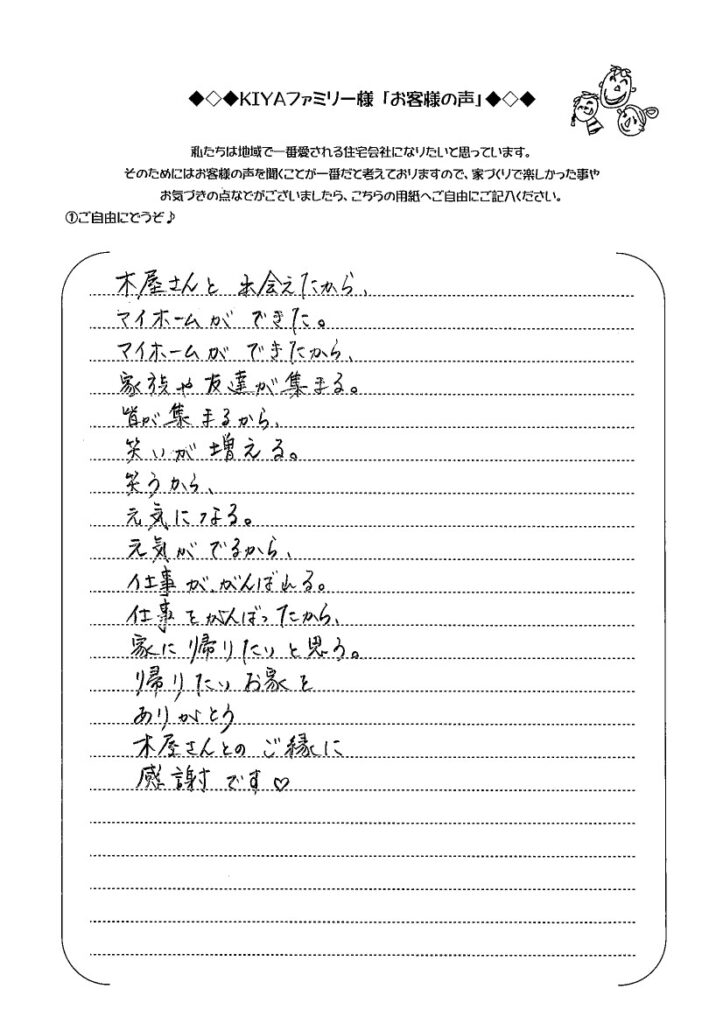 ◆◇◆KIYAファミリー様「お客様の声」◆◇◆
私たちは地域で一番愛される住宅会社になりたいと思っています。
そのためにはお客様の声を聞くことが一番だと考えておりますので、家づくりで楽しかった事や
お気づきの点などがございましたら、こちらの用紙へご自由にご記入ください。
①ご自由にどうぞ♪
木屋さんと 出会えたから、
マイホームが できた。
マイホームが できたから、
家族や友達が集まる。
皆が集まるから、
笑いが増える。
笑うから、
元気になる。
元気がでるから、
仕事ががんばれる。
仕事をがんばったから、
家に帰りたいと思う。
帰りたいお家を
ありがとう
木屋さんとのご縁に
感謝です♡